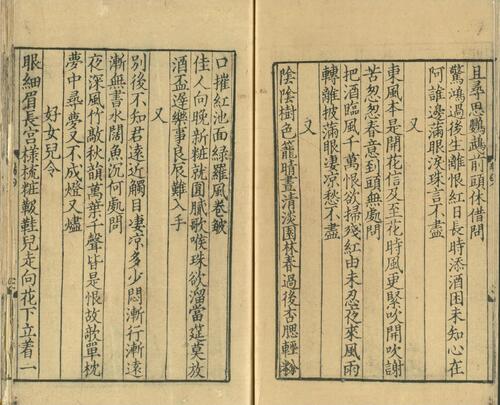 且尋思鸚鵡前頭休借問
驚鴻過後生離恨紅日長時添酒困未知心在
阿誰邊滿眼淚珠言不盡
又
東風本是開花信及至花時風更緊吹開吹謝
苦怱怱春意到頭無處問
把酒臨風千萬恨欲掃殘紅由未忍夜來風雨
轉離披滿眼凄凉愁不盡
又
陰陰樹色籠晴晝清淡園林春過後杏腮輕粉
日摧紅池面綠羅風卷皺
佳人向晚新粧就圓膩歌喉珠欲溜當筵莫放
酒盃遲樂事良辰難入手
又
別後不知君遠近觸目凄凉多少悶漸行漸遠
漸無書水闊魚沉何處問
夜深風竹敲秋韻萬葉千聲皆是恨故欹單枕
夢中尋夢又不成燈又燼
好女兒令
眼細眉長宮樣梳粧靸鞋兒走向花下立着一